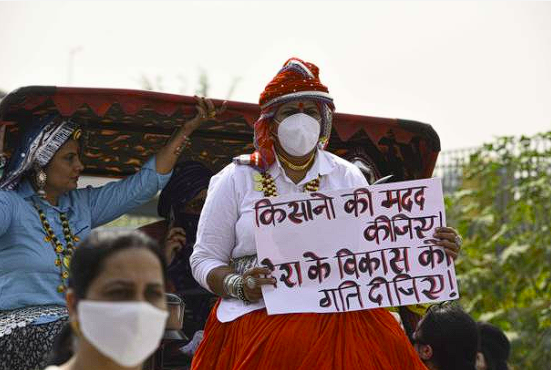 किसानो की मदद
कीजिए!
देश के विकास को
गति दीजिए!